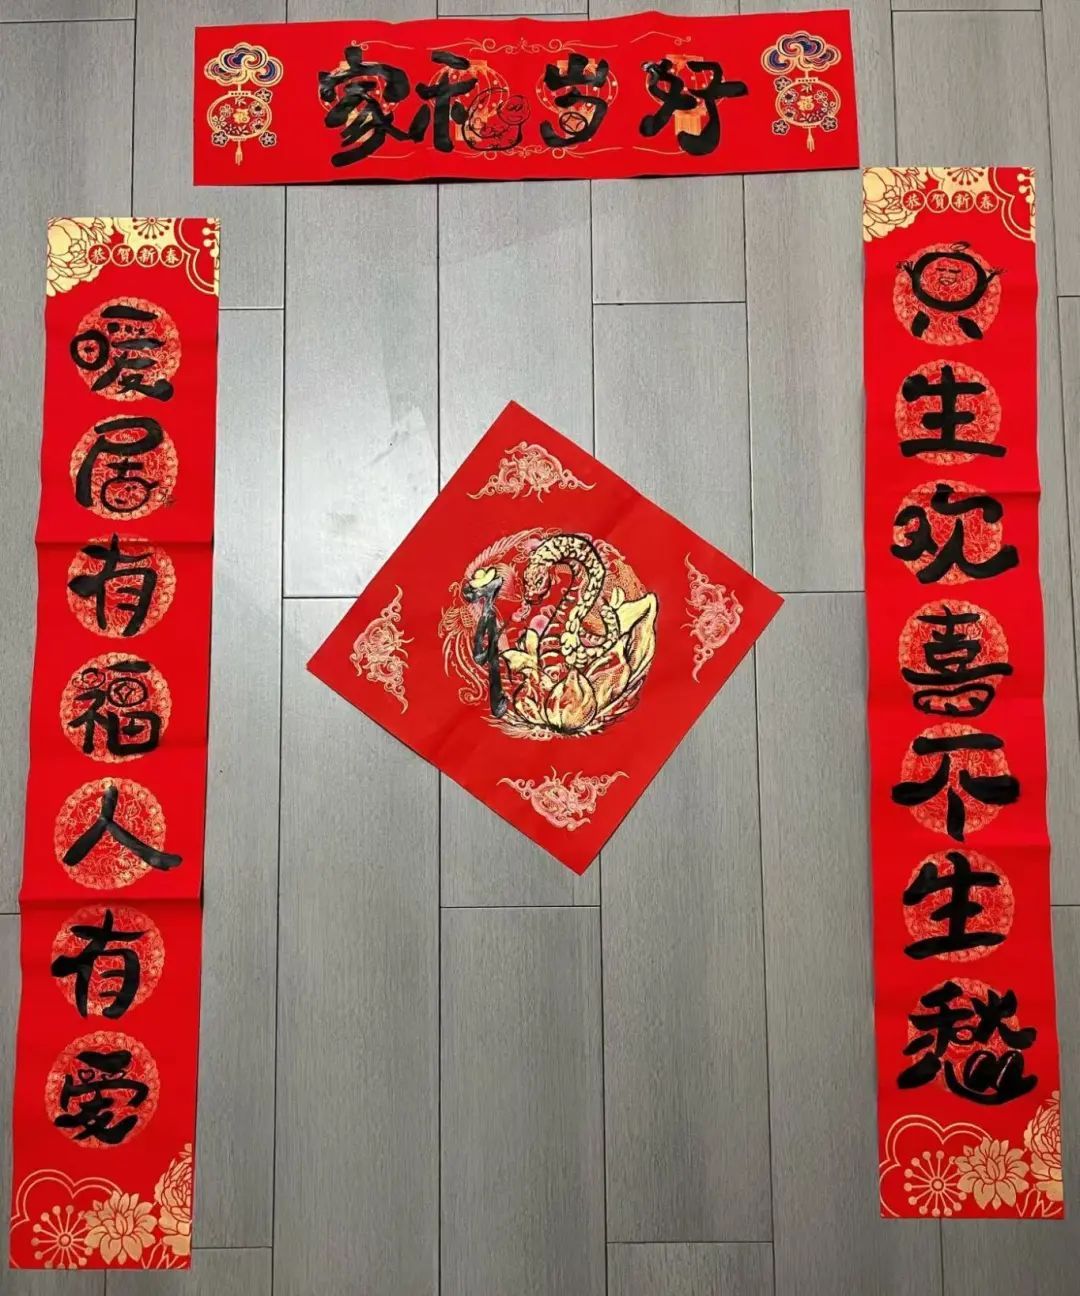 家和岁好
福
福
恭贺新春
只生欢喜不生愁
恭贺新春
暖居有福人有爱